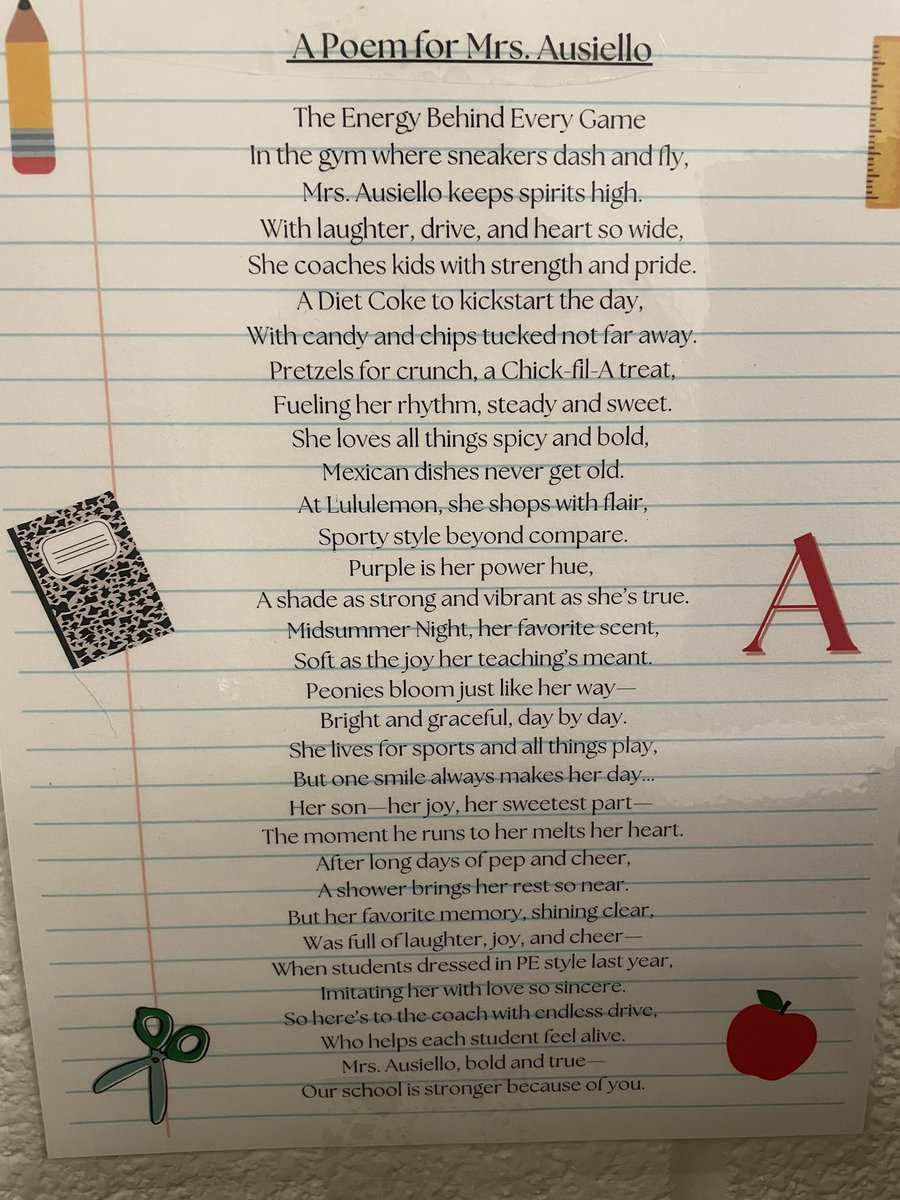 A Poem for Mrs. Ausiello
The Energy Behind Every Game
In the gym where sneakers dash and fly,
Mrs. Ausiello keeps spirits high.
With laughter, drive, and heart so wide,
She coaches kids with strength and pride.
A Diet Coke to kickstart the day,
With candy and chips tucked not far away.
Pretzels for crunch, a Chick-fil-A treat,
Fueling her rhythm, steady and sweet.
She loves all things spicy and bold,
Mexican dishes never get old.
At Lululemon, she shops with flair,
Sporty style beyond compare.
Purple is her power hue,
A shade as strong and vibrant as she's true.
Midsummer Night, her favorite scent,
Soft as the joy her teaching's meant.
Peonies bloom just like her way—
Bright and graceful, day by day.
She lives for sports and all things play,
But one smile always makes her day...
Her son—her joy, her sweetest part—
The moment he runs to her melts her heart.
After long days of pep and cheer,
A shower brings her rest so near.
But her favorite memory, shining clear,
Was full of laughter, joy, and cheer—
When students dressed in PE style last year,
Imitating her with love so sincere.
So here's to the coach with endless drive,
Who helps each student feel alive.
Mrs. Ausiello, bold and true—
Our school is stronger because of you.
A